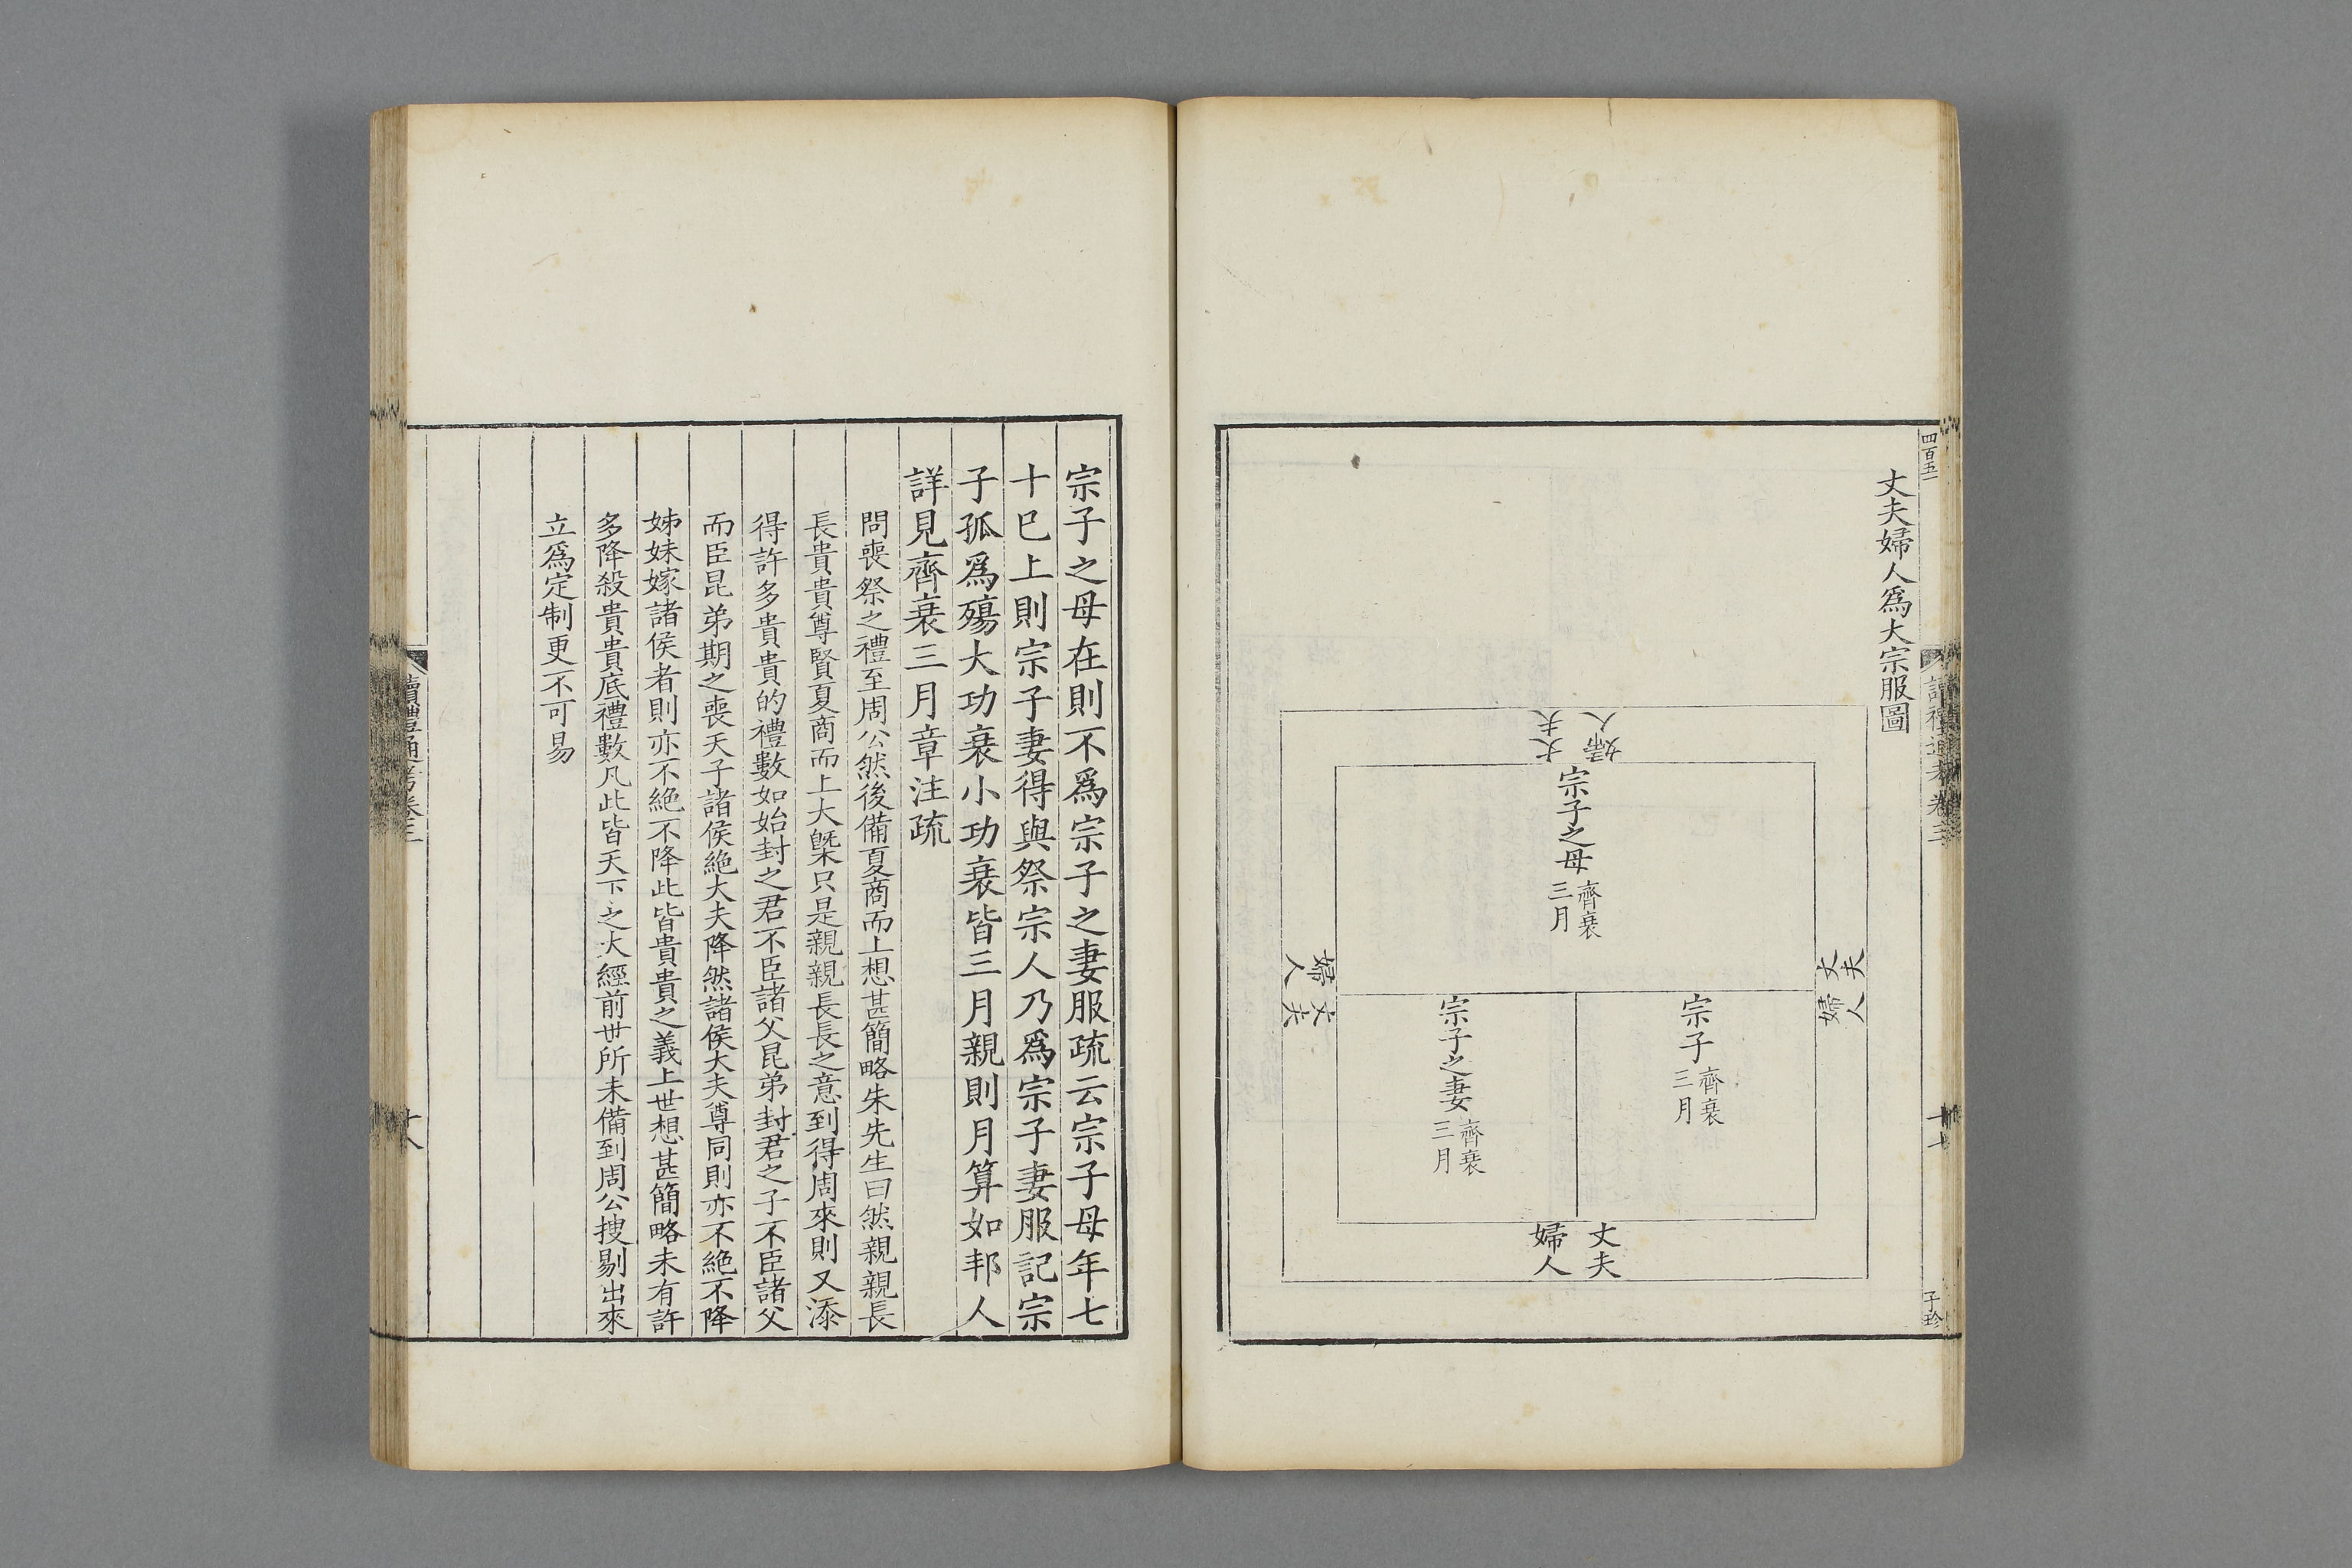 四百五一
讀禮通考卷三
十七
子珍
丈夫婦人爲大宗服圖
丈夫
婦人
宗子之母
齊衰
三月
丈夫
婦人
婦人
丈夫
宗子
齊衰
三月
宗子之妻
齊衰
三月
丈夫
婦人
宗子之母在則不爲宗子之妻服疏云宗子母年七
十已上則宗子妻得與祭宗人乃爲宗子妻服記宗
子孤爲殤大功衰小功衰皆三月親則月算如邦人
詳見齊衰三月章注疏
問喪祭之禮至周公然後備夏商而上想甚簡略朱先生曰然親親長
長貴貴尊賢夏商而上大槩只是親親長長之意到得周來則又添
得許多貴貴的禮數如始封之君不臣諸父昆弟封君之子不臣諸父
而臣昆弟期之喪天子諸侯絶大夫降然諸侯大夫尊同則亦不絶不降
姊妹嫁諸侯者則亦不絶不降此皆貴貴之義上世想甚簡略未有許
多降殺貴貴底禮數凡此皆天下之大經前世所未備到周公搜剔出來
立爲定制更不可易
讀禮通考卷三
十八